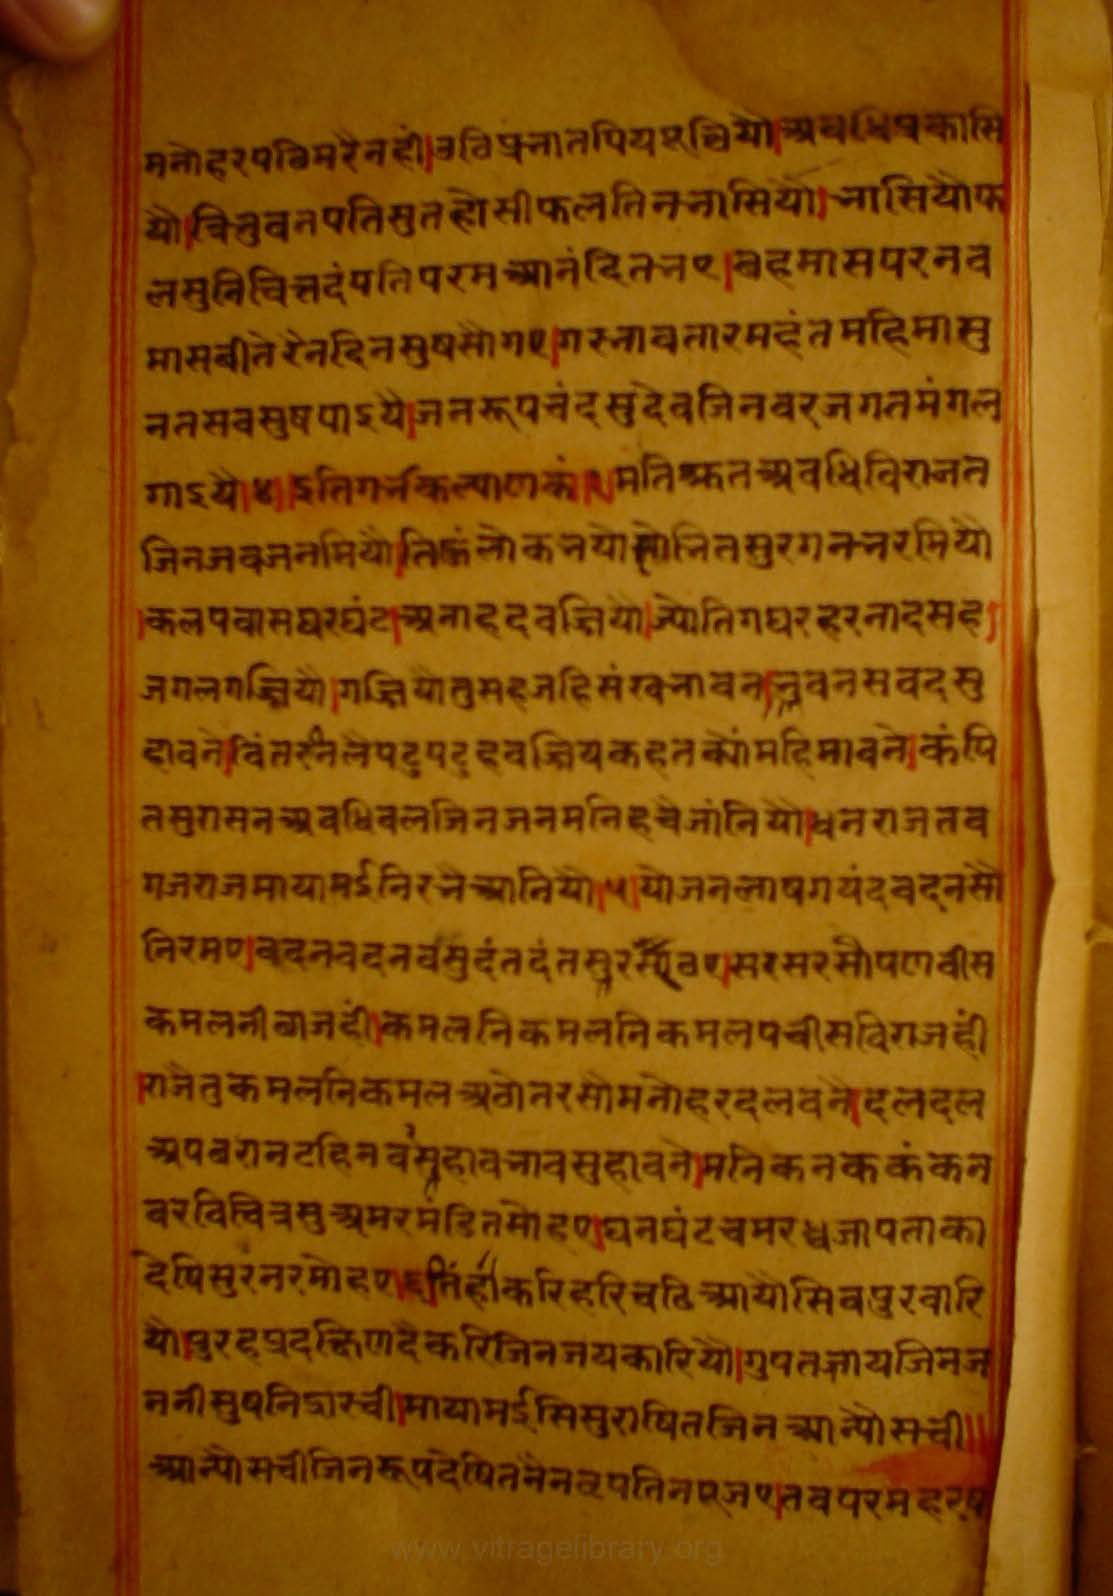 मनोहरपठिमरैनहीं।उठिप्रनातपियपूछियौ।अवधिप्रकासि
यौ।त्रिनुवनपतिसुतहोसीफलतिननासियौ।नासियौफ
लसुनिचित्तदंपतिपरमआनंदितनए।छहमासपरनव
मासबीतेरैनदिनसुषसौंगए।गरनावतारमहंतमहिमासु
नतसवसुषपाइयै।जनरूपचंदसुदेवजिनवरजगतमंगल
गाइयै।४।इतिगर्नकल्याणकं।१।मतिश्रुतअवधिविराजत
जिनजवजनमियौ।तिहूंलोकनयौ नितसुरगननरमियौ
।कलपवासघरघंट।अनाहदवज्जियौ।ज्योतिगघरहरनादसह।
जगलगज्जियौ।गज्जियौतुमहजहिसंखनावन।नुवनसवदसु
हावने।विंतरनिलैपटुपटुहवज्जियकहतक्योंमहिमावने।कंपि
तसुरासनअवधिवलजिनजनमनिहचैजांनियौ।धनराजतव
गजराजमायामईनिरनैआनियौ।५।योजनलाषगयंदवदनसौ
निरमए।वदनवदनवसुदंतदंतसुरसंठए।सरसरसौपणवीस
कमलनीछाजहीं।कमलनिकमलनिकमलपचीसविराजहीं
।राजैतुकमलनिकमलअठोतरसौमनोहरदलवने।दलदल
अपछरानटहिनवरसहावनावसुहावने।मनिकनककंकन
वरविचित्रसुअमरमंडितमोहए।घनघंटचमरधुजापताका
देषिसुरनरमोहए।६।तिंहिंकरिहरिचढिआयौसिवपुरवारि
यौ।पुरहप्रदक्षिणदैकरिजिनजयकारियौ।गुपतजायजिनज
ननीसुषनिद्रारची।मायामईसिसुराषितजिनआन्यौसची॥
आन्यौसचीजिनरूपदेषितनैनत्रपतिनहूजए।तवपरमहरष
www.vitragelibrary.org